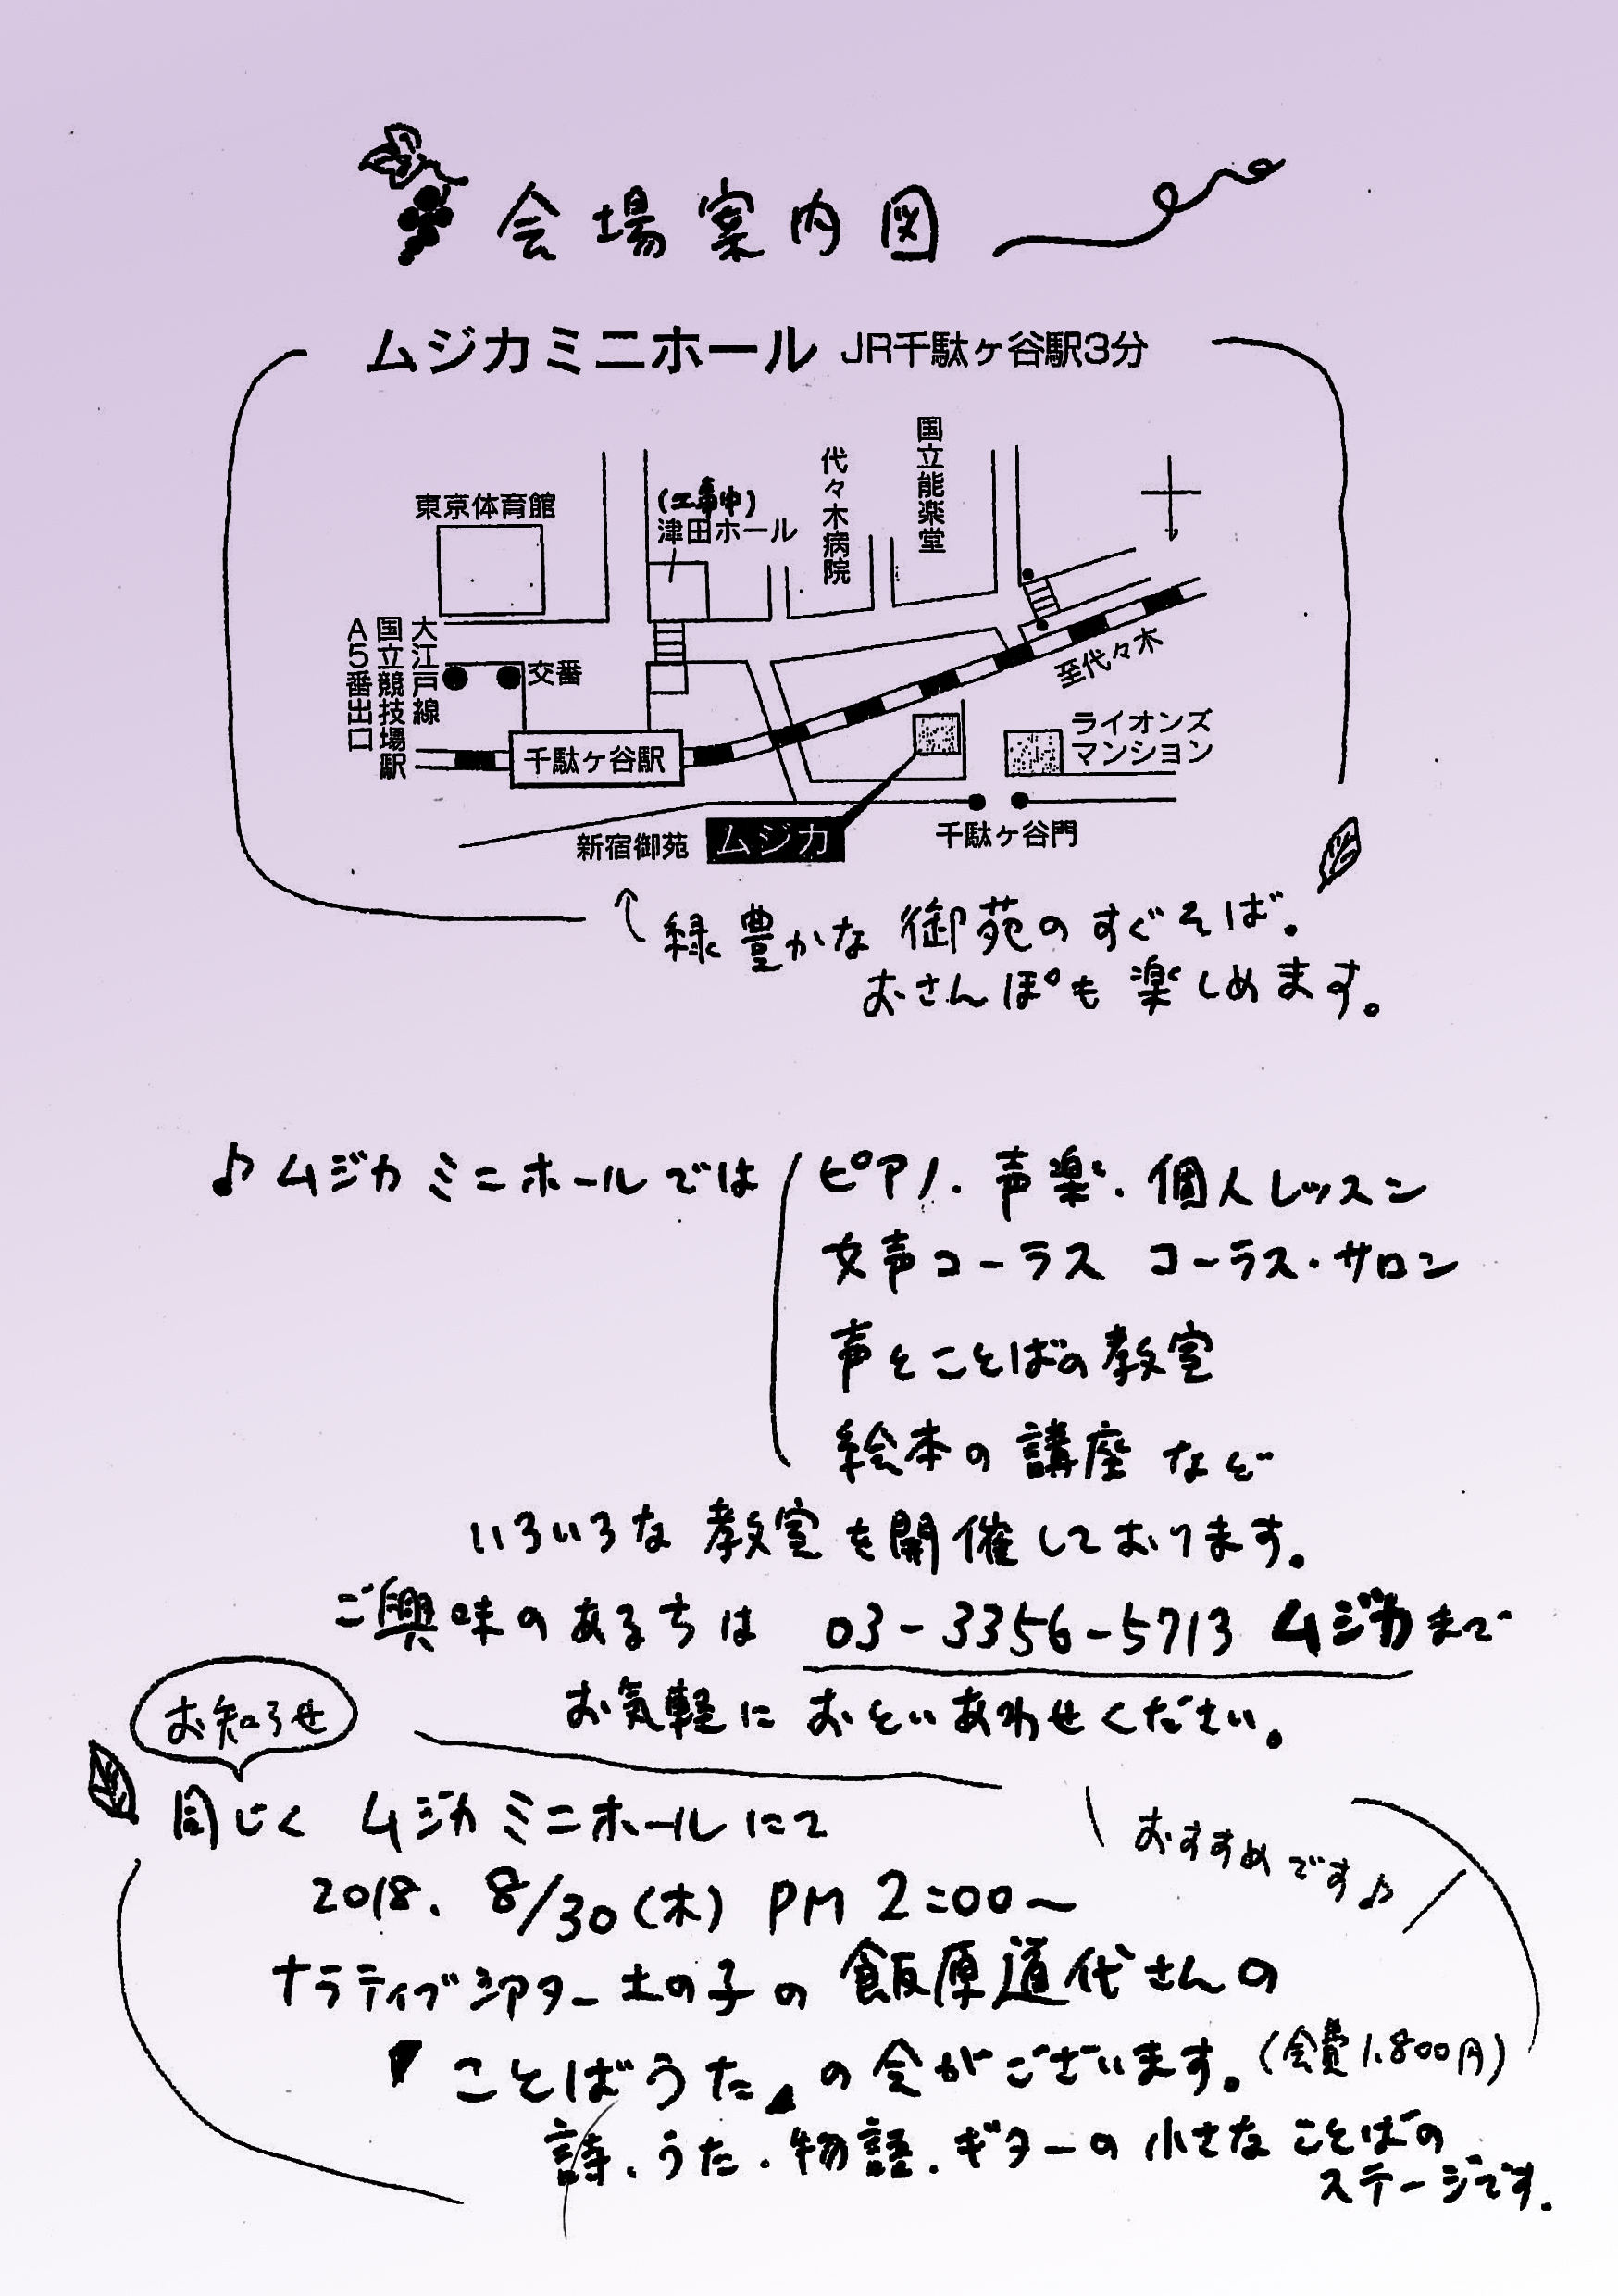 会場案内図
ムジカミニホール JR千駄ヶ谷駅3分
国立能楽堂
代々木病院
(工事中)
津田ホール
東京体育館
大江戸線
国立競技場駅
A5番出口
交番
千駄ヶ谷駅
至代々木
ライオンズ
マンション
新宿御苑
ムジカ
千駄ヶ谷門
↑緑豊かな御苑のすぐそば。
おさんぽも楽しめます。
♪ムジカミニホールでは
ピアノ・声楽・個人レッスン
女声コーラス コーラス・サロン
声とことばの教室
絵本の講座 など
いろいろな教室を開催しております。
ご興味のある方は 03-3356-5713 ムジカまで
お気軽に おといあわせください。
お知らせ
同じく ムジカミニホールにて
おすすめです♪
2018. 8/30(木) PM 2:00〜
ナラティブシアター土の子の飯原道代さんの
『ことばうた』の会がございます。(会費1,800円)
詩、うた・物語・ギターの小さなことばの
ステージです.